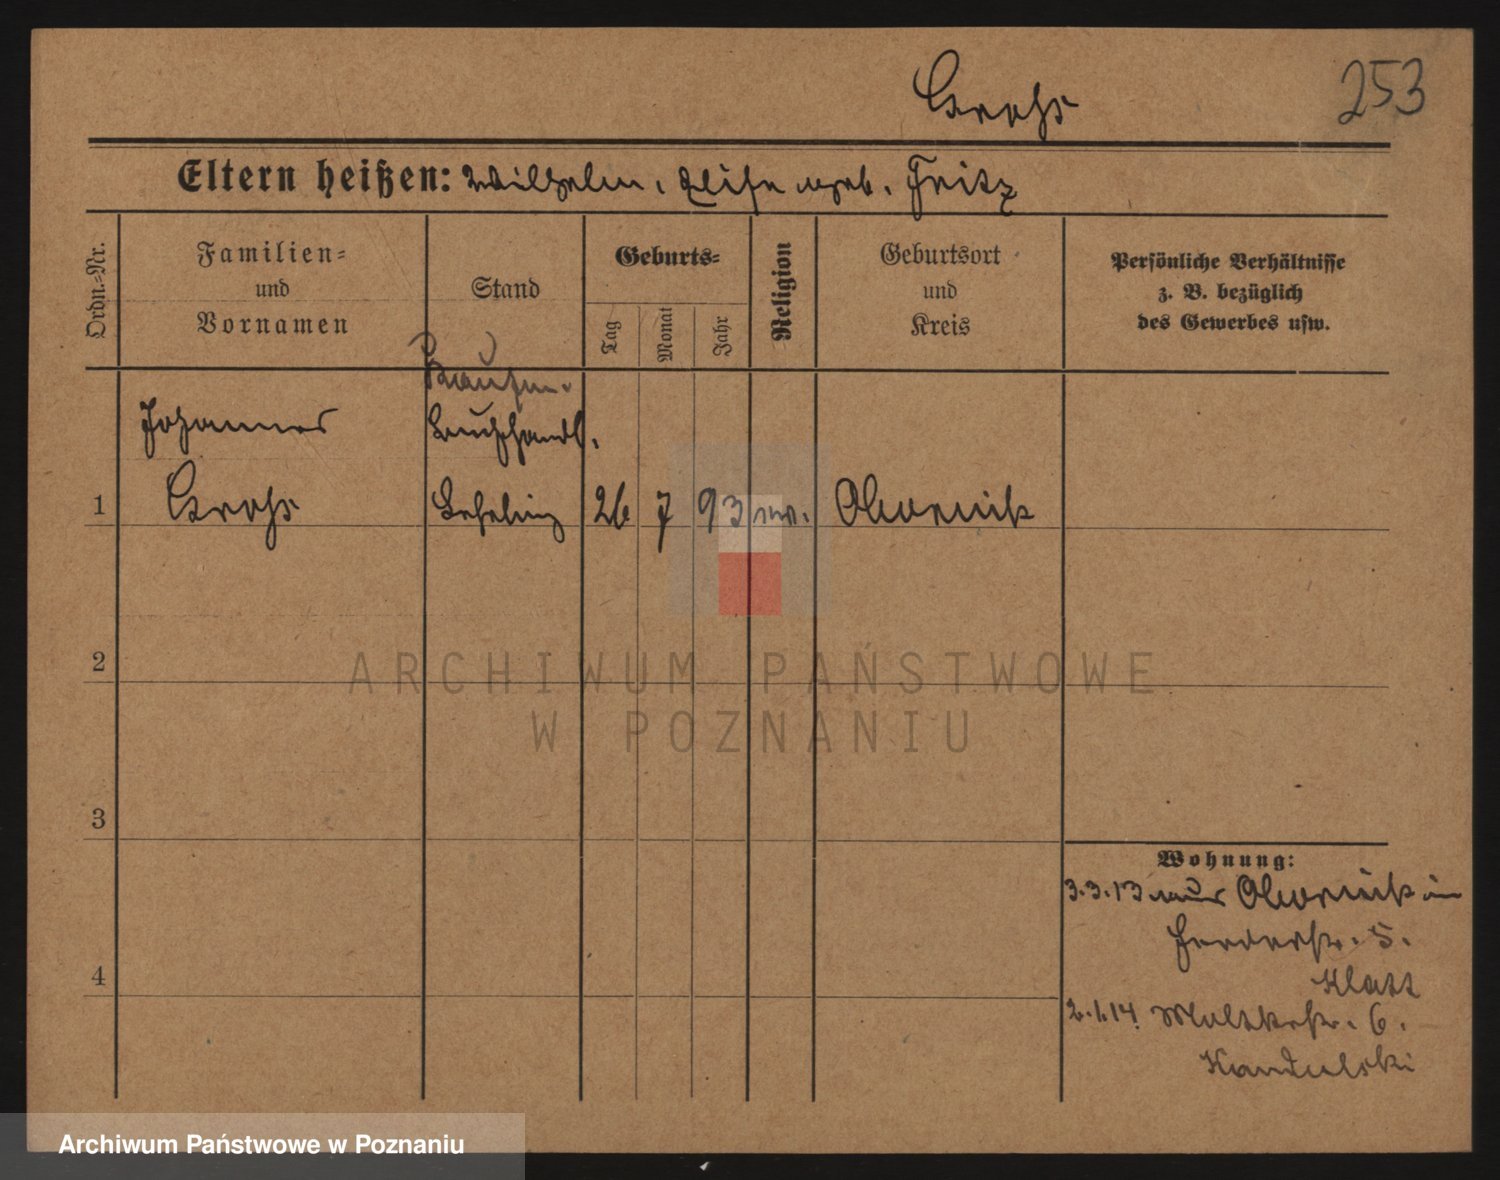 Krohs
253
Eltern heißen: Wilhelm, Elise geb. Fritz
Ordn.-Nr.
Familien-
und
Vornamen
Stand
Geburts-
Tag
Monat
Jahr
Religion
Geburtsort
und
Kreis
Persönliche Verhältnisse
z. B. bezüglich
des Gewerbes usw.
Kaufm.
Johannes
Buchhandl.
1
Krohs
Lehrling
26
7
93
ev.
Obornik
2
3
4
Wohnung:
3.3.13 aus Obornik in
Herderstr. 5.
Klatt
2.1.14 Moltkestr. 6.
Kandulski
ARCHIWUM PAŃSTWOWE
W POZNANIU
Archiwum Państwowe w Poznaniu